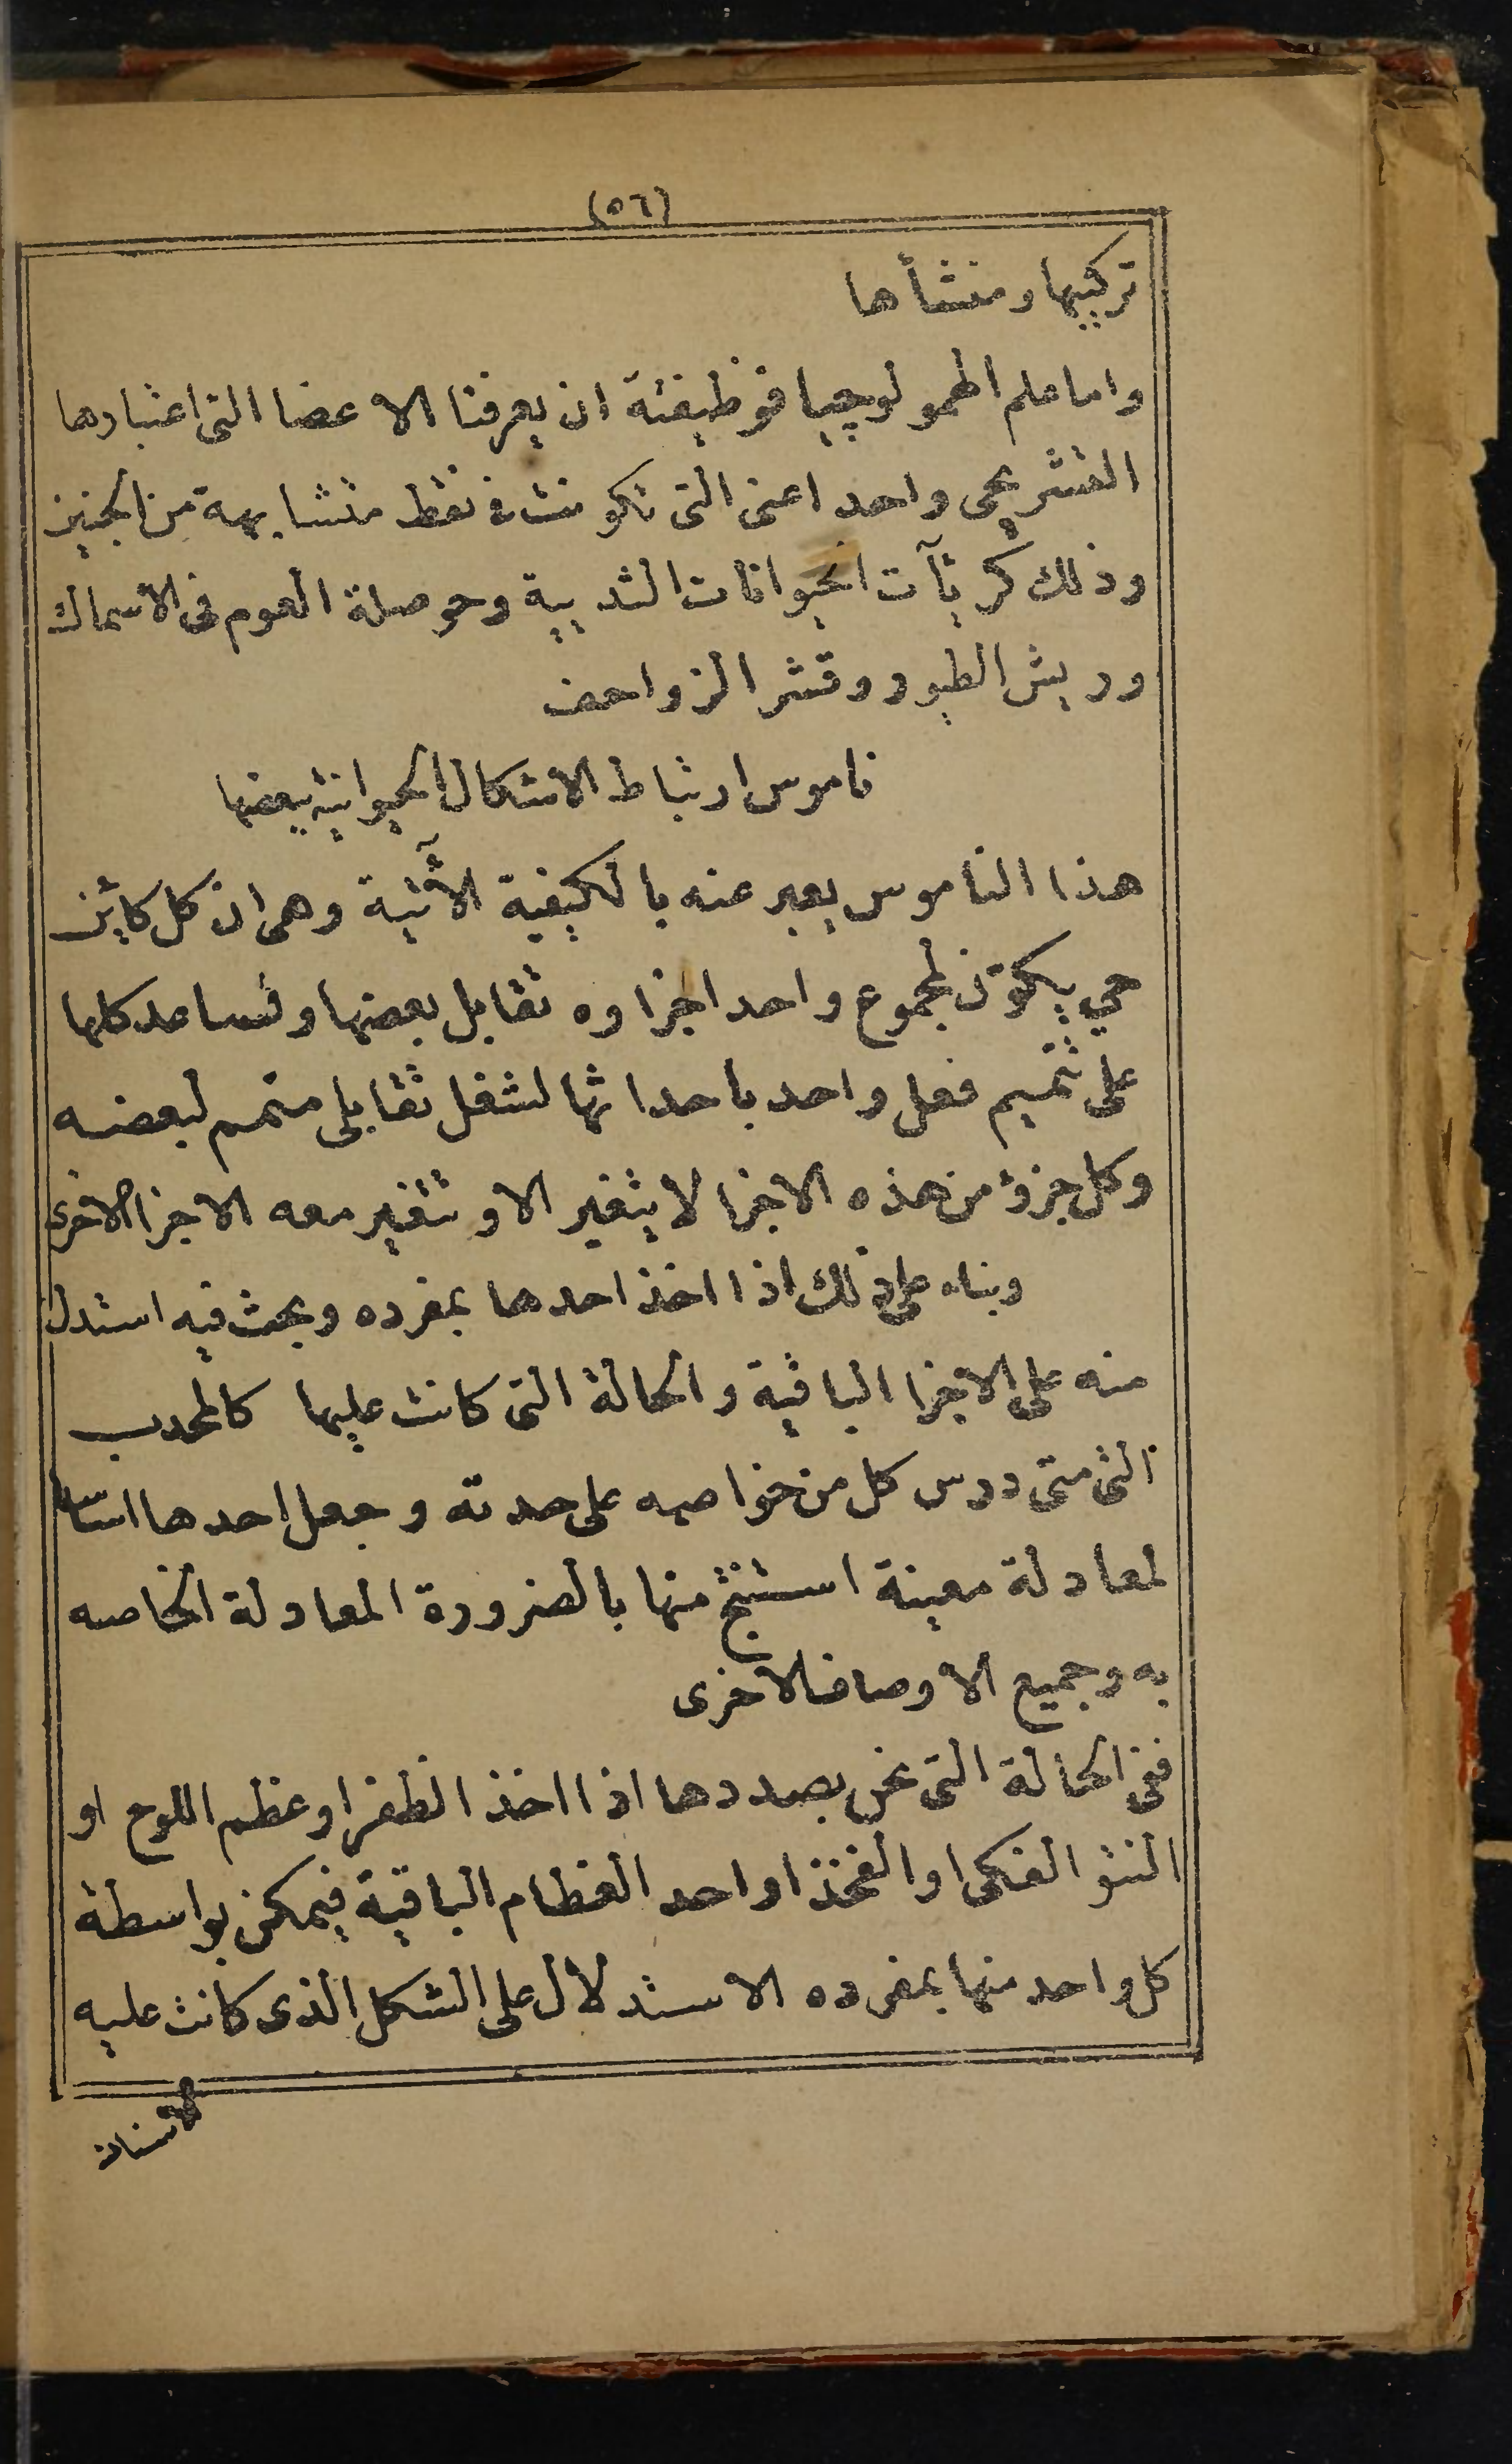 (٥٦)
تركيبها ومنشأها
واما علم الهمولوجيا فوظيفته ان يعرفنا الاعضا التى اعتبارها
التشريحى واحد اعنى التى تكونت فى نقط متشابهة من الجنين
وذلك كرئآت الحيوانات الثديية وحوصلة العوم فى الاسماك
وريش الطيور وقشر الزواحف
ناموس ارتباط الاشكال الحيوانية ببعضها
هذا الناموس يعبر عنه بالكيفية الآتية وهى ان كل كاين
حي يكوّن لمجموع واحد اجزاوه تقابل بعضها وتساعد كلها
على تتميم فعل واحد باحداثها لشغل تقابلى متمم لبعضه
وكل جزؤ من هذه الاجزا لا يتغير الا وتتغير معه الاجزا الاخرى
وبناء على ذلك اذا اخذ احدها بمفرده وبحث فيه استدل
منه على الاجزا الباقية والحالة التى كانت عليها كالمحدب
التى متى درس كل من خواصه على حدته وجعل احدها اساسا
لمعادلة معينة استنتج منها بالضرورة المعادلة الخاصه
به وجميع الاوصاف الاخرى
ففى الحالة التى نحن بصددها اذا اخذ الظفر او عظم اللوح او
النتؤ الفكى او الفخذ او احد العظام الباقية فيمكن بواسطة
كل واحد منها بمفرده الاستدلال على الشكل الذى كانت عليه
الاسنان